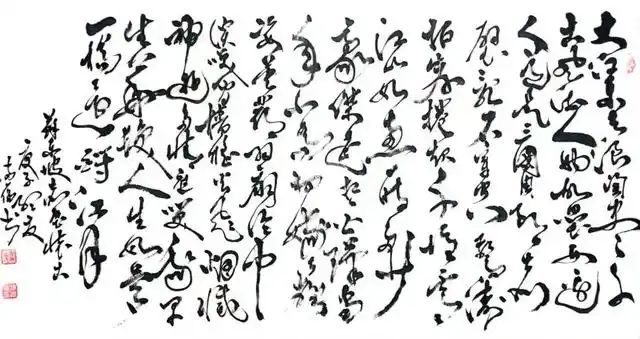 大江东去浪淘尽千
古风流人物故垒西边
人道是三国周郎赤
壁乱石穿空惊涛
拍岸卷起千堆雪
江山如画一时多少
豪杰遥想公瑾当
年小乔初嫁了雄
姿英发羽扇纶巾
谈笑间樯橹灰飞烟灭
神游多情应笑我早
生华发人生如梦
一樽还酹江月
苏东坡赤壁怀古